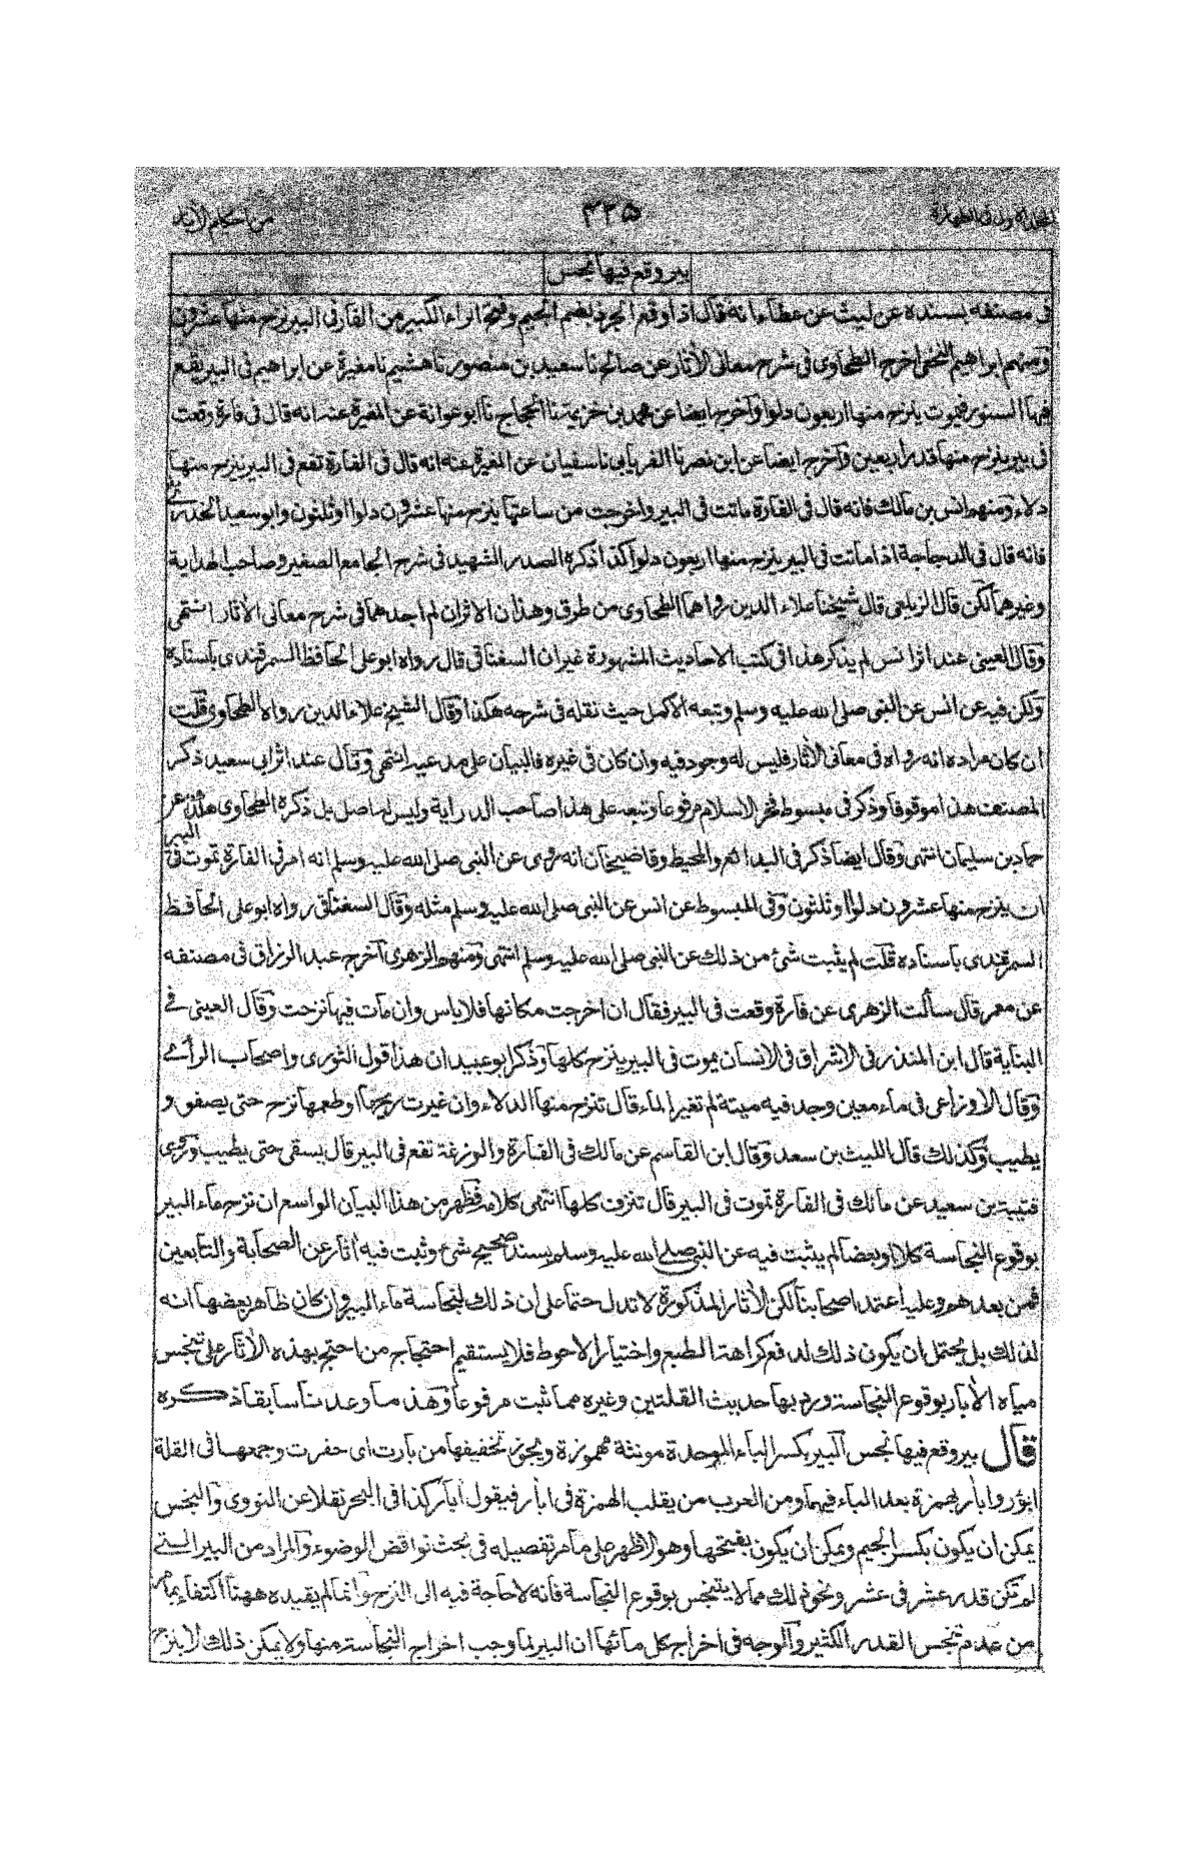 ٤٢٥
من احكام الآبار
بير وقع فيها نجس
فى مصنفه بسنده عن ليث عن عطاء انه قال اذا وقع الجرذ بضم الجيم وفتح الراء الكبير من الفار فى البير نزح منها عشرون
ومنهم ابراهيم النخعى اخرج الطحاوى فى شرح معانى الأثار عن صالح نا سعيد بن منصور نا هشيم نا مغيرة عن ابراهيم فى البير يقع
فيها السنور فيموت ينزح منها اربعون دلوا وآخرج ايضا عن محمد بن خزيمة نا الحجاج نا ابو عوانة عن المغيرة عنه انه قال فى فارة وقعت
فى بير ينزح منها قدر اربعين وآخرج ايضا عن ابن نصر نا الفريابى نا سفيان عن المغيرة عنه انه قال فى الفارة تقع فى البير ينزح منها
دلاء ومنهم انس بن مالك فانه قال فى الفارة ماتت فى البير واخرجت من ساعتها ينزح منها عشرون دلوا او ثلثون وابو سعيد الخدرى
فانه قال فى الدجاجة اذا ماتت فى البير ينزح منها اربعون دلوا كذا ذكره الصدر الشهيد فى شرح الجامع الصغير وصاحب الهداية
وغيرهما لكن قال الزيلعى قال شيخنا علاء الدين رواهما الطحاوى من طرق وهذان الاثران لم اجدهما فى شرح معانى الاثار انتهى
وقال العينى عند اثر انس لم يذكر هذا فى كتب الاحاديث المشهورة غير ان السغناقى قال رواه ابو على الحافظ السمرقندى باسناده
ولكن فيه عن انس عن النبى صلى الله عليه وسلم وتبعه الاكمل حيث نقله فى شرحه هكذا وقال الشيخ علاء الدين رواه الطحاوى قلت
ان كان مراده انه رواه فى معانى الأثار فليس له وجود فيه وان كان فى غيره فالبيان على مدعيه انتهى وقال عند اثر ابى سعيد ذكر
المصنف هذا موقوفا وذكر فى مبسوط فخر الاسلام مرفوعا وتبعه على هذا صاحب الدراية وليس له اصل بل ذكره الطحاوى هكذا عن
حماد بن سليمان انتهى وقال ايضا ذكر فى البدائع والمحيط وقاضيخان انه روى عن النبى صلى الله عليه وسلم انه امر فى الفارة تموت فى البير
ان ينزح منها عشرون دلوا او ثلثون وفى المبسوط عن انس عن النبى صلى الله عليه وسلم مثله وقال السغناقى رواه ابو على الحافظ
السمرقندى باسناده قلت لم يثبت شئ من ذلك عن النبى صلى الله عليه وسلم انتهى ومنهم الزهرى آخرج عبد الرزاق فى مصنفه
عن معمر قال سألت الزهرى عن فارة وقعت فى البير فقال ان اخرجت مكانها فلا باس وان مات فيها نزحت وقال العينى فى
البناية قال ابن المنذر فى الاشراق فى الانسان يموت فى البير ينزح كلها وذكر ابو عبيد ان هذا قول الثورى واصحاب الرأى
وقال الاوزاعى فى ماء معين وجد فيه ميتة لم تغير الماء قال تنزح منها الدلاء وان غيرت ريحها او طعمها نزح حتى يصفو و
يطيب وكذلك قال الليث بن سعد وقال ابن القاسم عن مالك فى الفارة والوزغة تقع فى البير قال يستقى حتى يطيب وروى
قتيبة بن سعيد عن مالك فى الفارة تموت فى البير قال تنزف كلها انتهى كلامه فظهر من هذا البيان الواسع ان نزح ماء البير
بوقوع النجاسة كلا او بعضا لم يثبت فيه عن النبى صلى الله عليه وسلم بسند صحيح شئ وثبت فيه أثار عن الصحابة والتابعين
فمن بعدهم وعليه اعتمد اصحابنا لكن الأثار المذكورة لا تدل حتما على ان ذلك لنجاسة ماء البير وان كان ظاهر بعضها انه
لذلك بل يحتمل ان يكون ذلك لدفع كراهة الطبع واختيار الاحوط فلا يستقيم احتجاج من احتج بهذه الأثار على تنجس
مياه الأبار بوقوع النجاسة ورد بها حديث القلتين وغيره مما ثبت مرفوعا وهذا ما وعدنا سابقا ذكره
قال بير وقع فيها نجس البير بكسر الباء الموحدة مونثة مهموزة ويجوز تخفيفها من بارت اى حفرت وجمعها فى القلة
ابؤر وابأر بهمزة بعد الباء فيهما ومن العرب من يقلب الهمزة فى ابأر فيقول آبار كذا فى البحر نقلا عن النووى والنجس
يمكن ان يكون بكسر الجيم ويمكن ان يكون بفتحها وهو الاظهر على ما مر تفصيله فى بحث نواقض الوضوء والمراد من البير التى
لم تكن قدر عشر فى عشر ونحو ذلك مما لا يتنجس بوقوع النجاسة فانه لا حاجة فيه الى النزح وانما لم يقيده ههنا اكتفاء بما مر
من عدم تنجس القدر الكثير والوجه فى اخراج كل مائها ان البير لما وجب اخراج النجاسة منها ولا يمكن ذلك الا بنزح